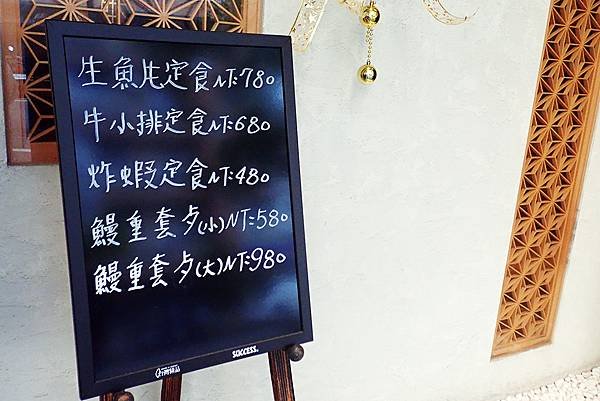 生魚片定食NT:780
牛小排定食NT:680
炸蝦定食NT:480
鰻重套夕(小)NT:580
鰻重套夕(大)NT:980
SUCCESS.